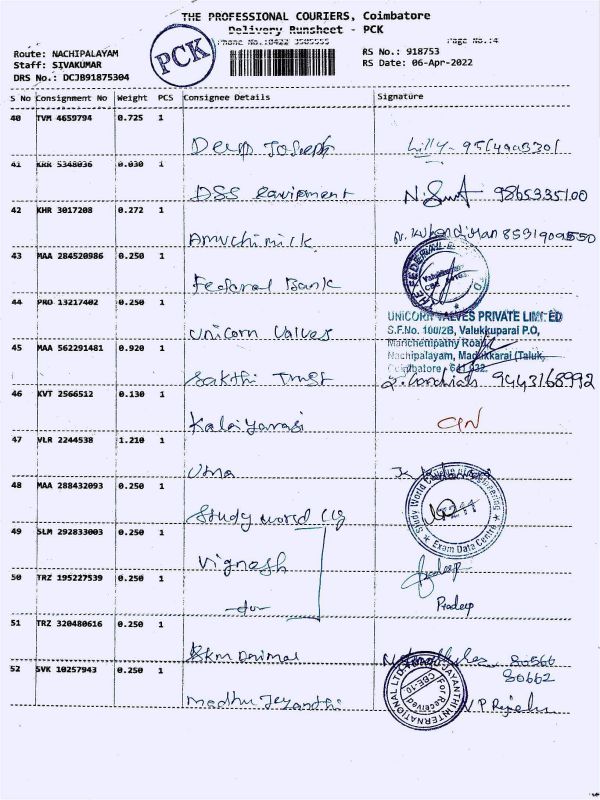 THE PROFESSIONAL COURIERS, Coimbatore
Delivery Runsheet - PCK
Phone No.:0422 3505555 Page No.:4
Route: NACHIPALAYAM
Staff: SIVAKUMAR
DRS No.: DCJB91875304
PCK
RS No.: 918753
RS Date: 06-Apr-2022
S No Consignment No Weight PCS Consignee Details Signature
40 TVM 4659794 0.725 1
Deep Joseph Lilly
41 KRR 5348036 0.030 1
DSS equipment 9865335100
42 KHR 3017208 0.272 1
43 MAA 284520986 0.250 1
Federal Bank
THE FEDERAL
44 PRO 13217402 0.250 1
Unicorn Valves
UNICORN VALVES PRIVATE LIMITED
S.F.No. 100/2B, Valukkuparai P.O,
Manchettipathy Road,
Nachipalayam, Madukkarai (Taluk,
Coimbatore - 641 032.
45 MAA 562291481 0.920 1
Sakthi Trust 9443168992
46 KVT 2566512 0.130 1
Kalaiyarasi
47 VLR 2244538 1.210 1
Uma
48 MAA 288432093 0.250 1
Study world
Exam Data Centre
49 SLM 292833003 0.250 1
Vignesh
50 TRZ 195227539 0.250 1
-do-
Pradeep
51 TRZ 320480616 0.250 1
80566
80662
52 SVK 10257943 0.250 1
Madhu Jeyanthi
JAYANTHI INTERNATIONAL LTD
For Received
CBE-10